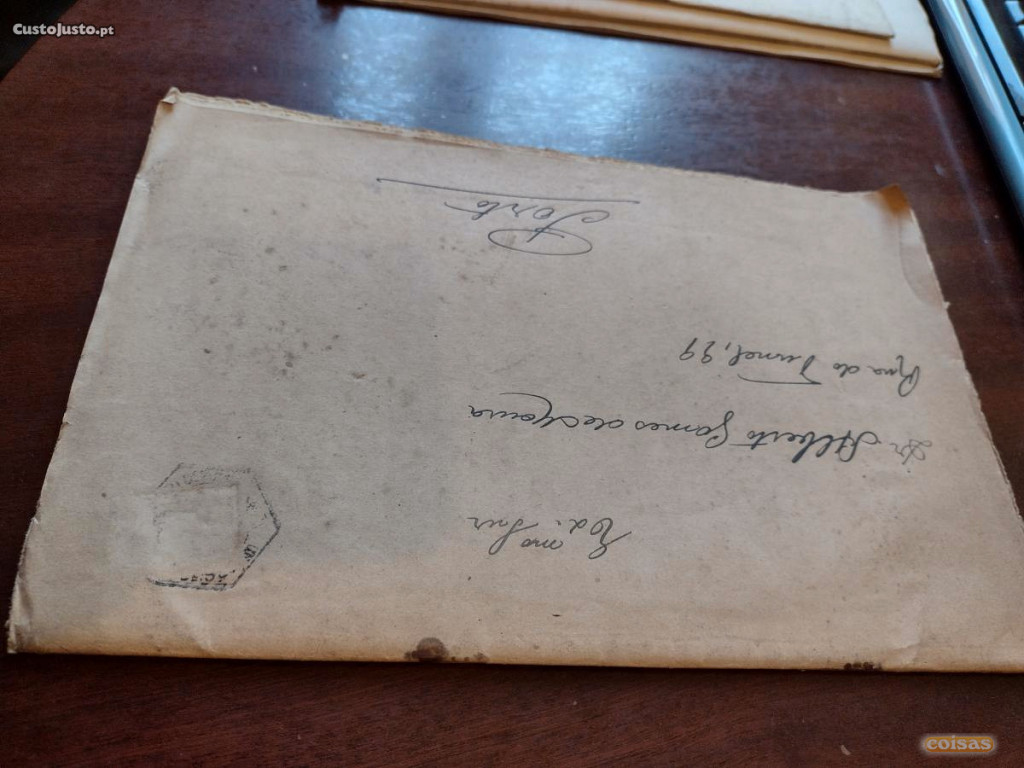 CustoJusto.pt
Exmo Snr
Dr Alberto Gomes de Moura
Rua do Tunel, 99
Porto
coisas